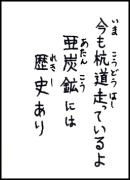 いま こうどう はし
今も杭道走っているよ
あたんこう
亜炭鉱には
れきし
歴史あり